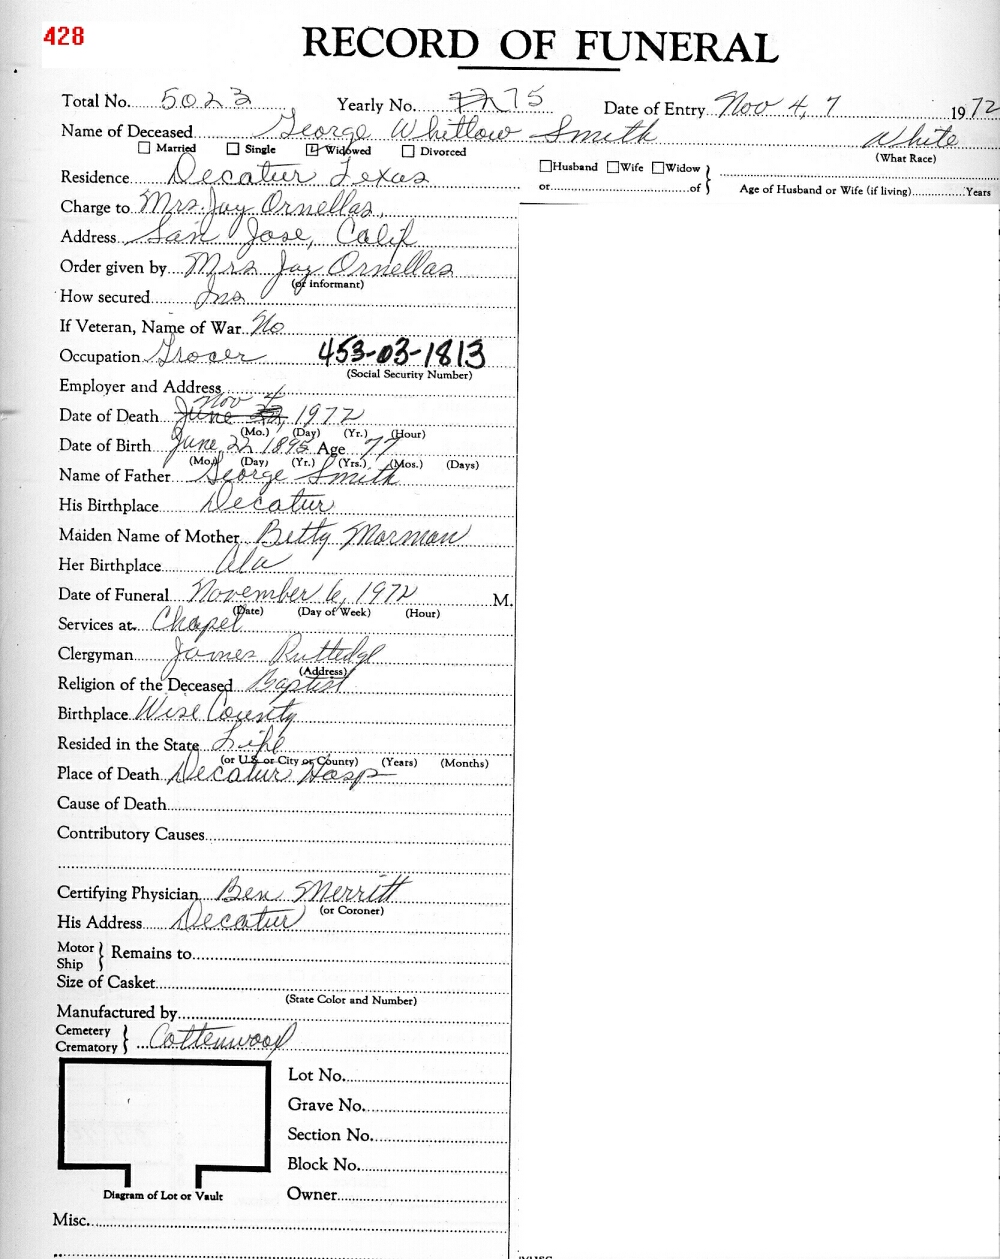 428
RECORD OF FUNERAL
Total No. 5023 Yearly No. 72 75 Date of Entry Nov 4, 7 1972
Name of Deceased George Whitlow Smith White
Married Single Widowed Divorced (What Race)
Husband Wife Widow
Residence Decatur Texas or of Age of Husband or Wife (if living) Years
Charge to Mrs. Jay Ornellas,
Address San Jose, Calif
Order given by Mrs Jay Ornellas
(or informant)
How secured Ins
If Veteran, Name of War No
Occupation Grocer 453-03-1813
(Social Security Number)
Employer and Address
Nov 4
Date of Death June 22, 1972
(Mo.) (Day) (Yr.) (Hour)
Date of Birth June 22 1895 Age 77
(Mo.) (Day) (Yr.) (Yrs.) (Mos.) (Days)
Name of Father George Smith
His Birthplace Decatur
Maiden Name of Mother Betty Morman
Her Birthplace Ala
Date of Funeral November 6, 1972 M.
(Date) (Day of Week) (Hour)
Services at Chapel
Clergyman James Ruttedge
(Address)
Religion of the Deceased Baptist
Birthplace Wise County
Resided in the State Life
(or U.S. or City or County) (Years) (Months)
Place of Death Decatur Hosp
Cause of Death
Contributory Causes
Certifying Physician Ben Merritt
(or Coroner)
His Address Decatur
Motor Ship Remains to
Size of Casket
(State Color and Number)
Manufactured by
Cemetery Crematory Cottenwood
Lot No.
Grave No.
Section No.
Block No.
Diagram of Lot or Vault
Owner
Misc.